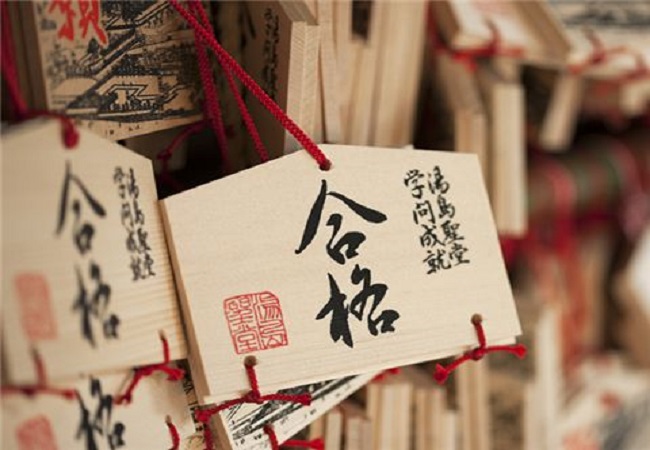 湯島聖堂
学問成就
合格
湯島
聖堂
湯島聖堂
学問成就
合格
格
願